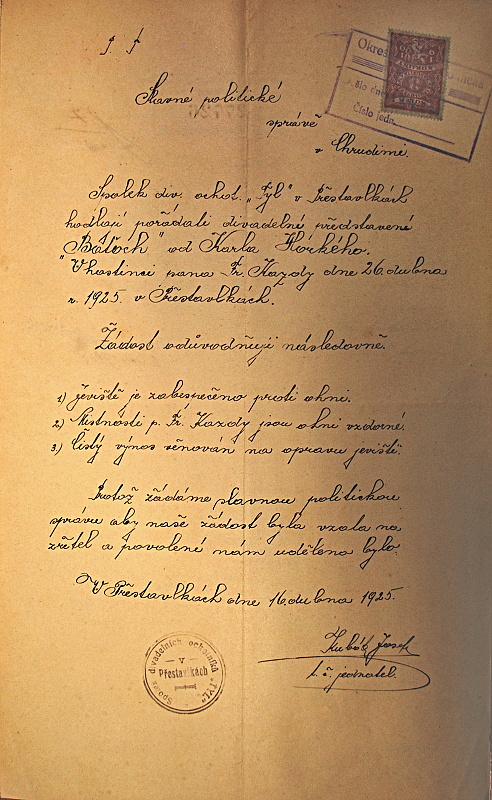 P. T.
Slavné politické
správě
v Chrudimi.
Okres
Číslo jedn.
Spolek div. ochot. „Tyl" v Přestavlkách
hodlají pořádati divadelné představené
„Baťoch" od Karla Horkého.
V hostinci pana Fr. Kazdy dne 26. dubna
r. 1925. v Přestavlkách.
Žádost odůvodňuji následovně.
1) jeviště je zabezpečeno proti ohni.
2) Místnosti p. Fr. Kazdy jsou ohni vzdorné.
3) Čistý výnos věnován na opravu jeviště.
Protož žádáme slavnou politickou
správu aby naše žádost byla vzala na
zřetel a povolené nám uděleno bylo.
V Přestavlkách dne 16. dubna 1925.
Josef
t. č. jednatel.
Spolek divadelních ochotníků "TYL"
V
Přestavlkách